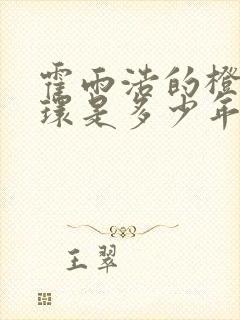 霍雨浩的橙
环是多少年
王翠